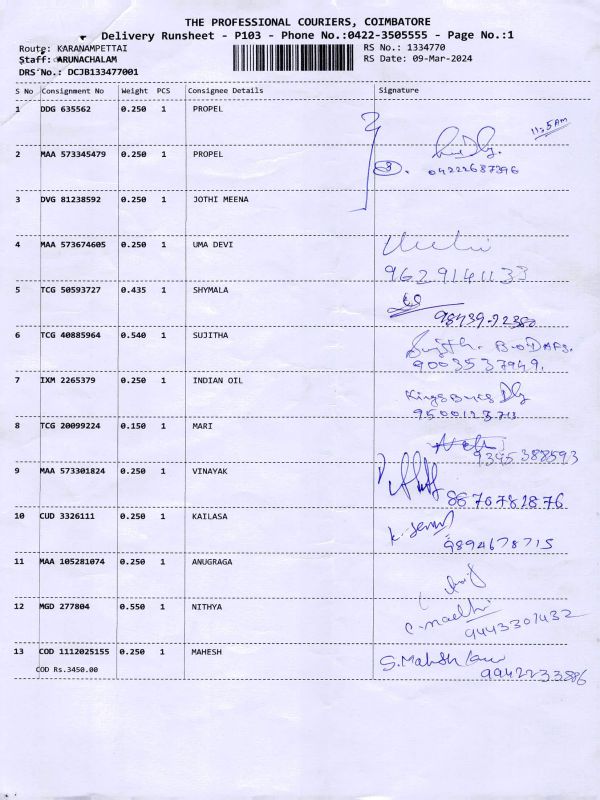 THE PROFESSIONAL COURIERS, COIMBATORE
Delivery Runsheet - P103 - Phone No.:0422-3505555 - Page No.:1
Route: KARANAMPETTAI RS No.: 1334770
Staff: ARUNACHALAM RS Date: 09-Mar-2024
DRS No.: DCJB133477001
S No Consignment No Weight PCS Consignee Details Signature
1 DDG 635562 0.250 1 PROPEL
11:5 AM
2 MAA 573345479 0.250 1 PROPEL
04222687396
3 DVG 81238592 0.250 1 JOTHI MEENA
4 MAA 573674605 0.250 1 UMA DEVI
9629141133
5 TCG 50593727 0.435 1 SHYMALA
98439-92380
6 TCG 40885964 0.540 1 SUJITHA
9003537949.
7 IXM 2265379 0.250 1 INDIAN OIL
8 TCG 20099224 0.150 1 MARI
9345388593
9 MAA 573301824 0.250 1 VINAYAK
8670782876
10 CUD 3326111 0.250 1 KAILASA
9894678715
11 MAA 105281074 0.250 1 ANUGRAGA
12 MGD 277804 0.550 1 NITHYA
9443301432
13 COD 1112025155 0.250 1 MAHESH S.Mahesh
COD Rs.3450.00 9942233886